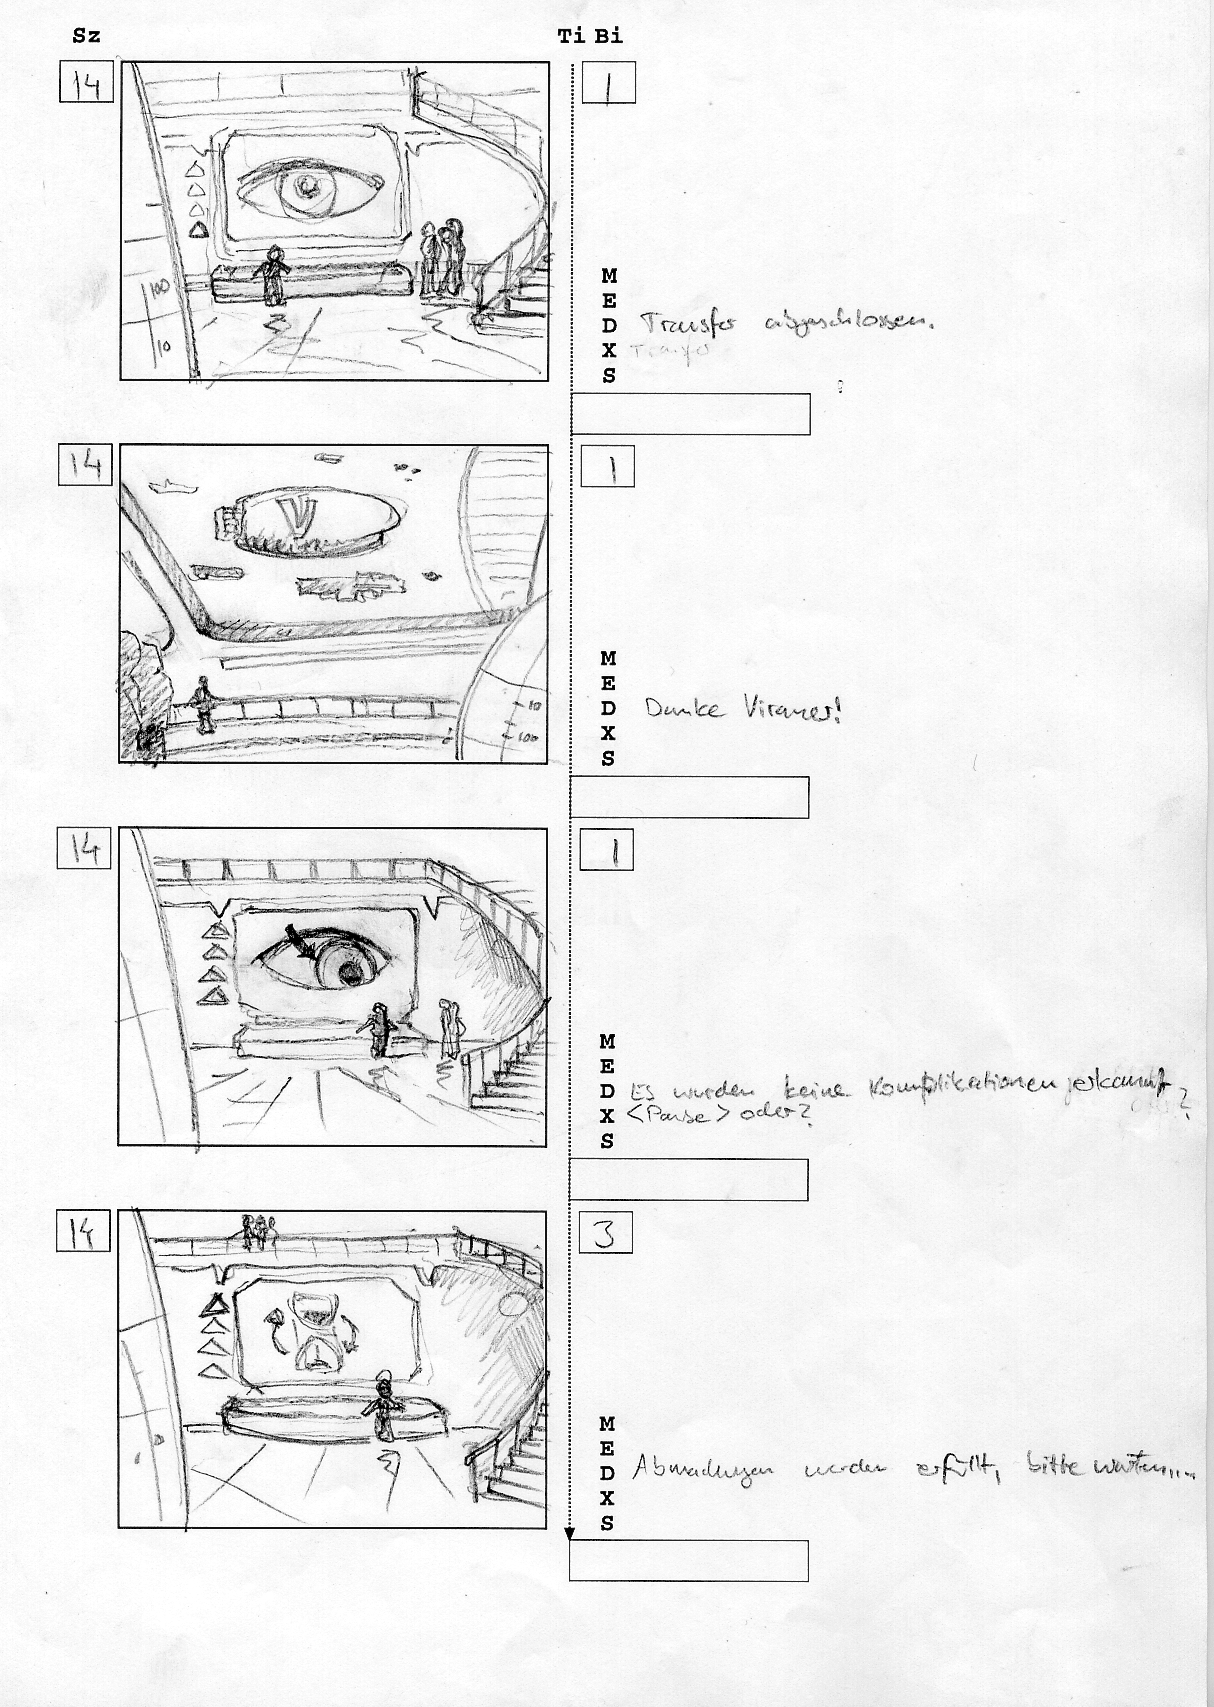 Sz Ti Bi
14 1
100
10
M
E
D Transfer abgeschlossen.
X Transfer
S
14 1
V
10
100
M
E
D Danke Viranes!
X
S
14 1
M
E
D Es wurden keine Komplikationen erkannt
X <Pause> oder?
S
14 3
M
E
D Abmachungen werden erfüllt, bitte warten....
X
S